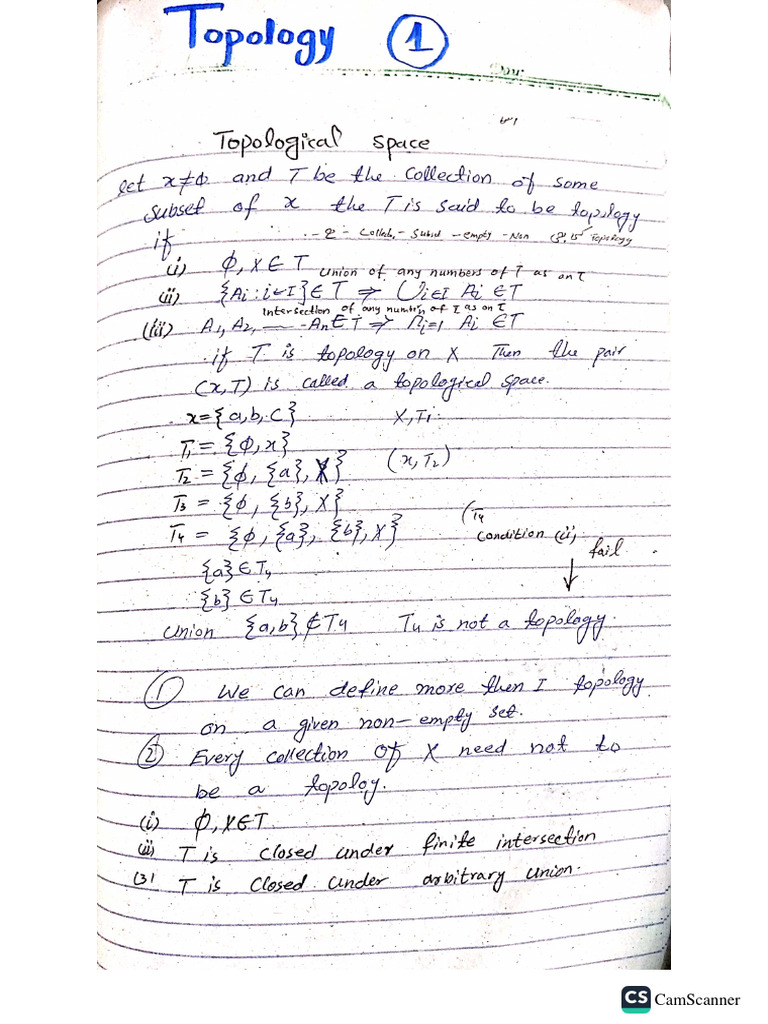 Topology ①
Topological space
let x≠ϕ and T be the collection of some
subset of x the T is said to be topology
if
(i) ϕ, X ∈ T
union of any numbers of T as on τ
(ii) {Ai : i ∈ I} ∈ T ⇒ ∪i∈I Ai ∈ T
intersection of any numbers of T as on τ
(iii) A1, A2, —— -An ∈ T ⇒ ∩i=1 Ai ∈ T
if T is topology on X Then the pair
(x,T) is called a topological space.
x={a,b,c} X,T1.
T1 = {ϕ,x}
T2 = {ϕ, {a}, X} (x,T2)
T3 = {ϕ, {b}, X}
T4 = {ϕ, {a}, {b}, X} (T4
condition (ii) fail
{a} ∈ T4
↓
{b} ∈ T4
union {a,b} ∉ T4 T4 is not a topology.
① We can define more then 1 topology
on a given non-empty set.
② Every collection of X need not to
be a topoloy.
(i) ϕ, X ∈ T.
(ii) T is closed under finite intersection
(3) T is closed under arbitrary union.
CS CamScanner